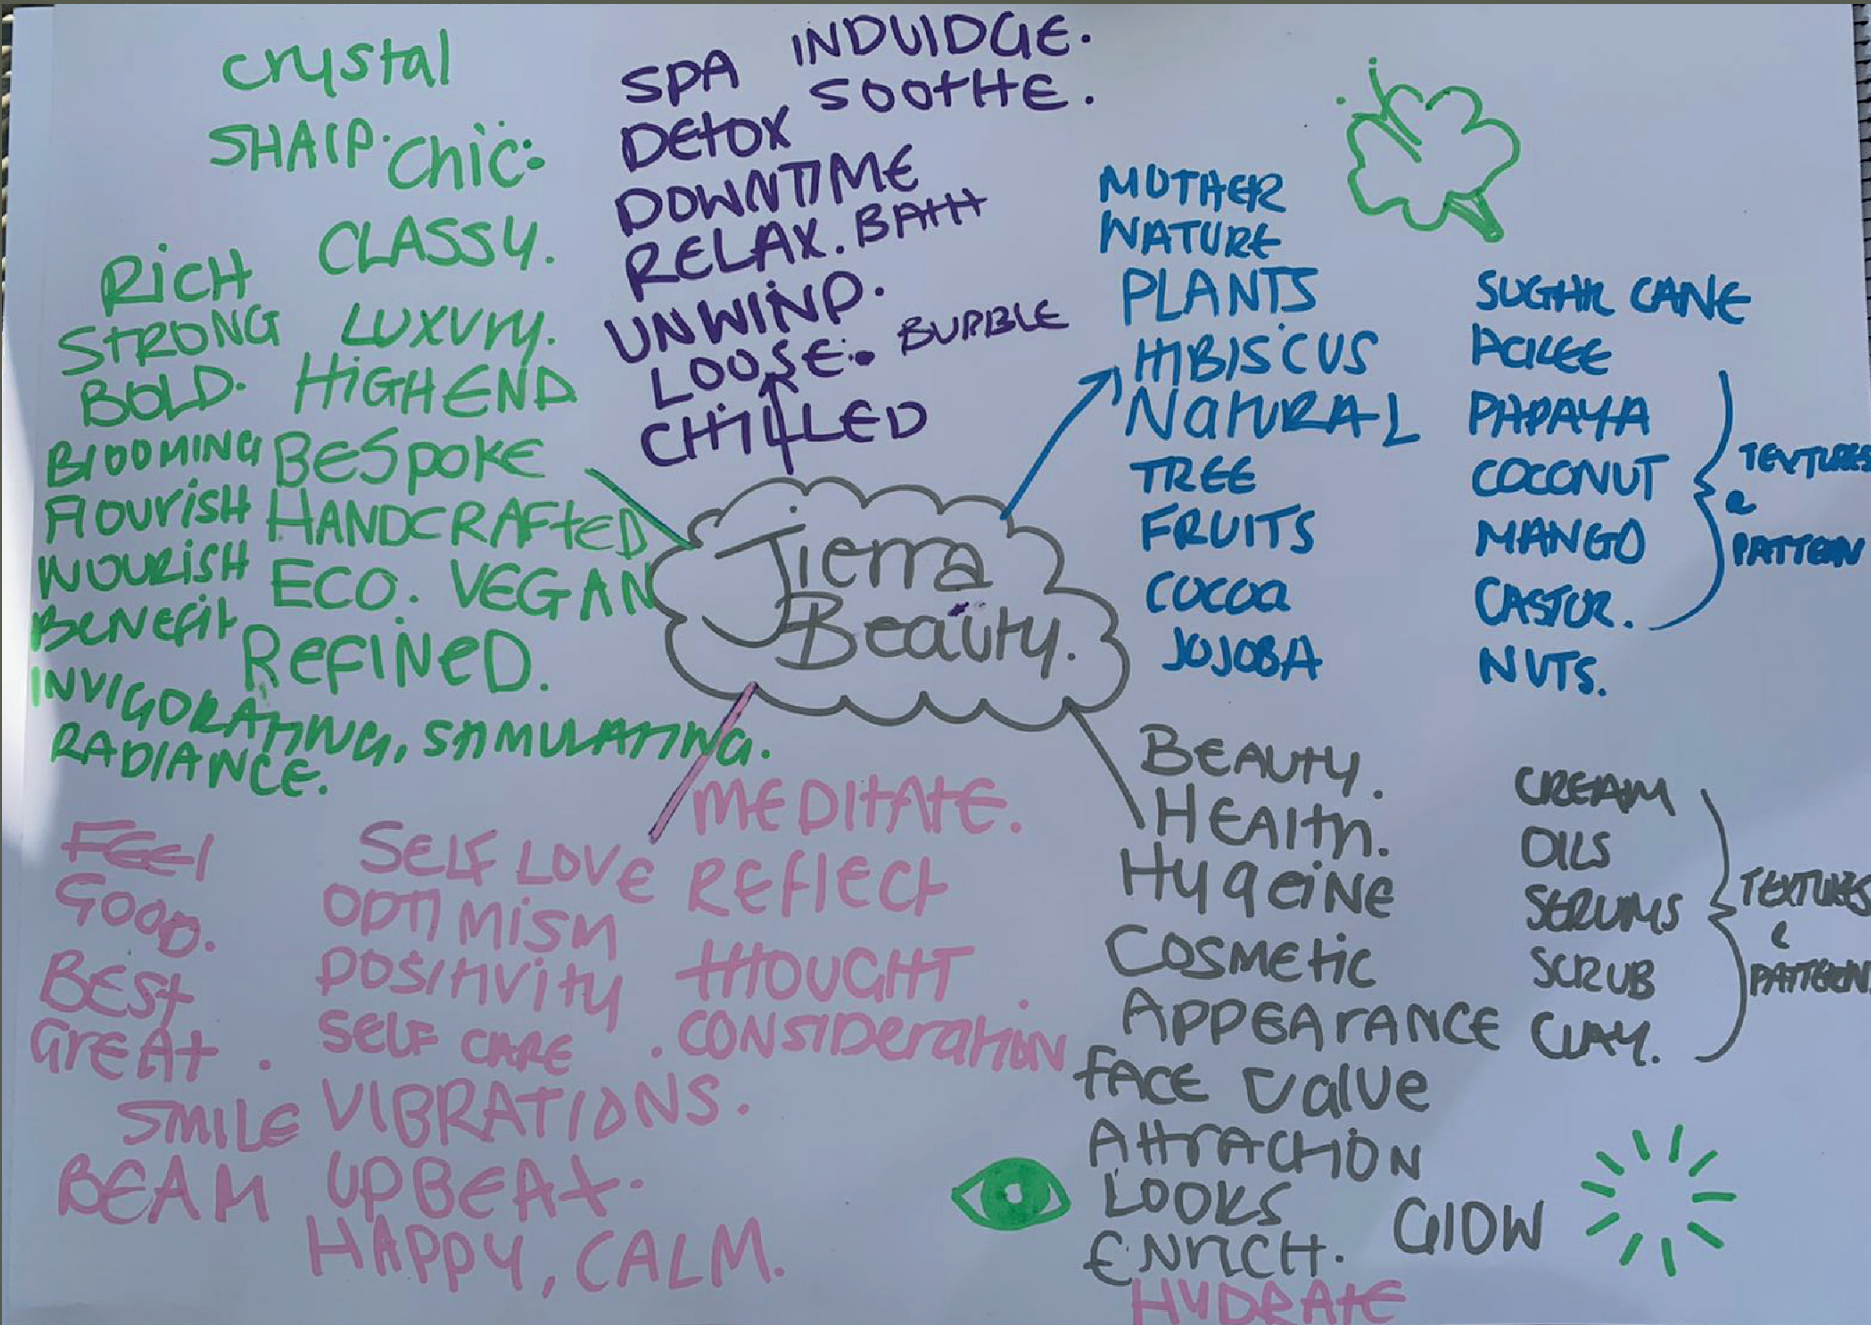 crystal
SHARP. Chic.
CLASSY.
RICH
STRONG
LUXURY.
BOLD.
HIGH END
BLOOMING
BESPOKE
FLOURISH
HANDCRAFTED
NOURISH
ECO. VEGAN
BENEFIT
REFINED.
INVIGORATING, STIMULATING.
RADIANCE.
SPA
INDUIDGE.
DETOX
SOOTHE.
DOWNTIME
RELAX. BATH
UNWIND.
LOOSE. BUBBLE
CHILLED
MOTHER
NATURE
PLANTS
HIBISCUS
NATURAL
TREE
FRUITS
COCOA
JOJOBA
SUGAR CANE
ACKEE
PAPAYA
COCONUT
MANGO
CASTOR.
NUTS.
TEXTURES
&
PATTERN
Tierra
Beauty.
MEDITATE.
FEEL
GOOD.
BEST
GREAT.
SELF LOVE
OPTIMISM
POSITIVITY
SELF CARE.
REFLECT
THOUGHT.
CONSIDERATION
SMILE
VIBRATIONS.
BEAM
UPBEAT.
HAPPY, CALM.
BEAUTY.
HEALTH.
HYGEINE
COSMETIC
APPEARANCE
FACE VALUE
ATTRACTION
LOOKS
ENRICH.
GLOW
HYDRATE
CREAM
OILS
SERUMS
SCRUB
CLAY.
TEXTURES
&
PATTERN